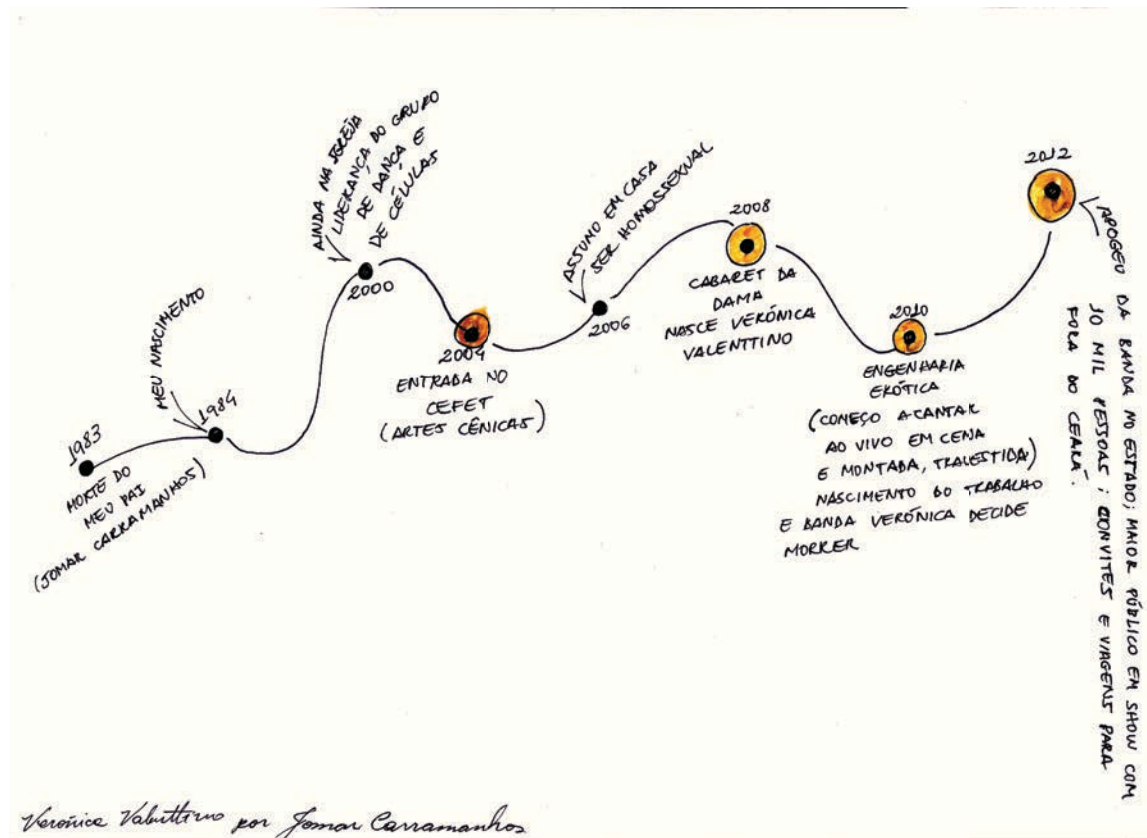 1983
MORTE DO
MEU PAI
(JOMAR CARRAMANHOS)
MEU NASCIMENTO
1984
AINDA NA IGREJA
LIDERANÇA DO GRUPO
DE DANÇA E
DE CÉLULAS
2000
2004
ENTRADA NO
CEFET
(ARTES CÊNICAS)
ASSUMO EM CASA
SER HOMOSSEXUAL
2006
2008
CABARET DA
DAMA
NASCE VERÓNICA
VALENTTINO
2010
ENGENHARIA
ERÓTICA
(COMEÇO A CANTAR
AO VIVO EM CENA
E MONTADA, TRAVESTIDA)
NASCIMENTO DO TRABALHO
E BANDA VERÓNICA DECIDE
MORRER
2012
APOGEU DA BANDA NO ESTADO; MAIOR PÚBLICO EM SHOW COM
10 MIL PESSOAS; CONVITES E VIAGENS PARA
FORA DO CEARÁ.
Verónica Valenttino por Jomar Carramanhos